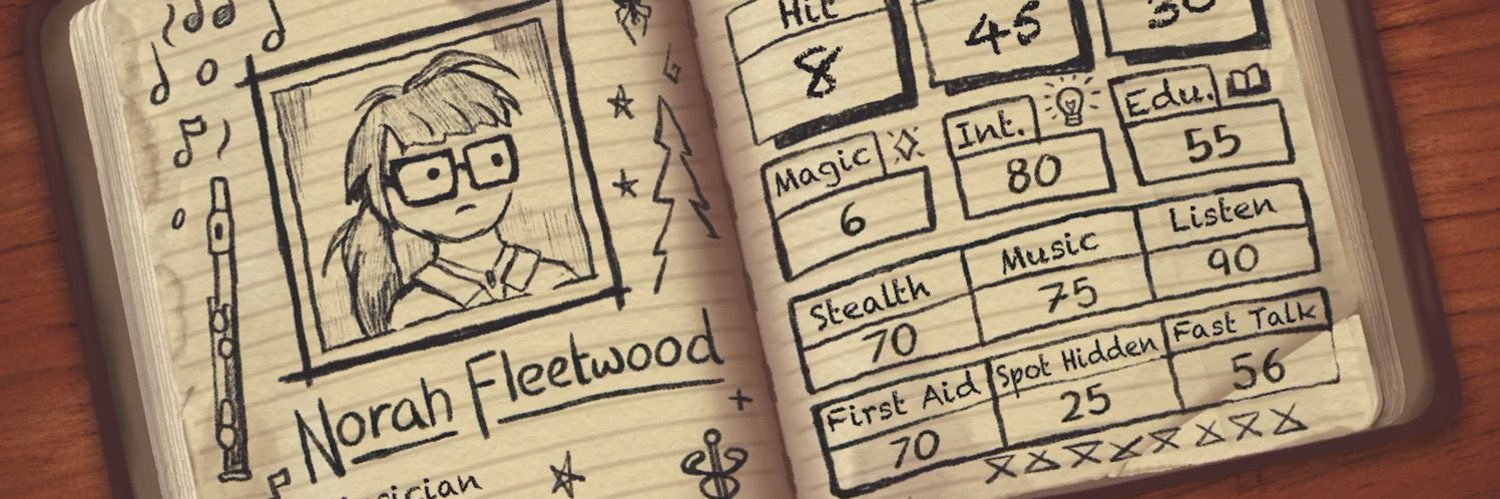 Norah Fleetwood
Hit
8
45
30
Magic
6
Int.
80
Edu.
55
Stealth
70
Music
75
Listen
90
First Aid
70
Spot Hidden
25
Fast Talk
56